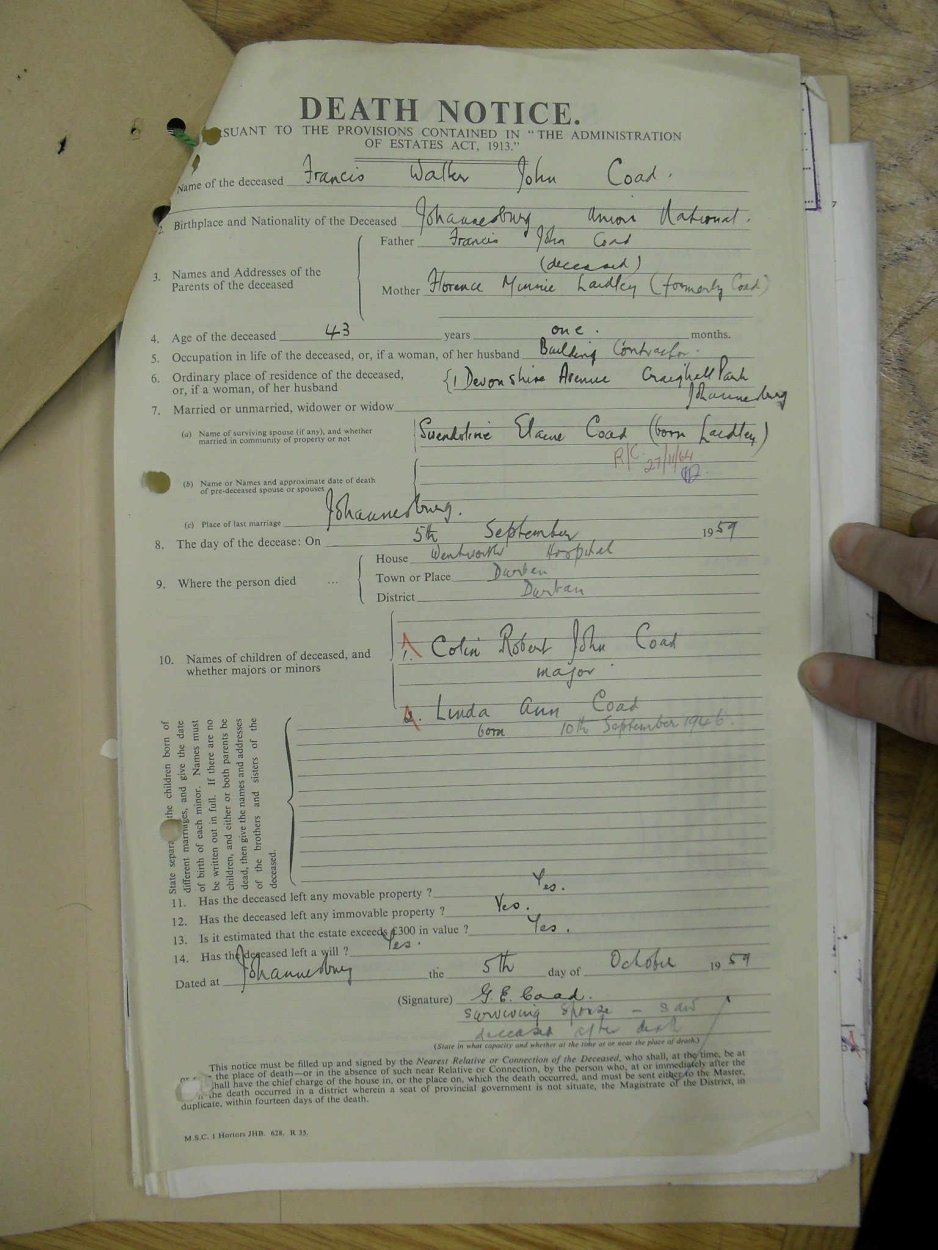 DEATH NOTICE.
SUANT TO THE PROVISIONS CONTAINED IN "THE ADMINISTRATION
OF ESTATES ACT, 1913."
Name of the deceased Francis Walter John Coad.
2. Birthplace and Nationality of the Deceased Johannesburg Union National.
Father Francis John Coad
(deceased)
3. Names and Addresses of the
Parents of the deceased
Mother Florence Minnie Laidley (formerly Coad)
4. Age of the deceased 43 years one. months.
5. Occupation in life of the deceased, or, if a woman, of her husband Building Contractor.
6. Ordinary place of residence of the deceased,
or, if a woman, of her husband
{1 Devonshire Avenue Craighall Park
Johannesburg
7. Married or unmarried, widower or widow
(a) Name of surviving spouse (if any), and whether
married in community of property or not
Gwendoline Elaine Coad (born Laidley)
R/C 27/11/64
(b) Name or Names and approximate date of death
of pre-deceased spouse or spouses
(c) Place of last marriage Johannesburg.
8. The day of the decease: On 5th September 1959
9. Where the person died ...
House Wentworth Hospital
Town or Place Durban
District Durban
10. Names of children of deceased, and
whether majors or minors
1. Colin Robert John Coad
major
2. Linda Ann Coad
born 10th September 1946.
State separa the children born of
different marriages, and give the date
of birth of each minor. Names must
be written out in full. If there are no
children, and either or both parents be
dead, then give the names and addresses
of the brothers and sisters of the
deceased.
11. Has the deceased left any movable property ? Yes.
12. Has the deceased left any immovable property ? Yes.
13. Is it estimated that the estate exceeds £300 in value ? Yes.
14. Has the deceased left a will ? Yes.
Dated at Johannesburg the 5th day of October 1959
(Signature) G. E. Coad.
Surviving Spouse – saw
deceased after death
(State in what capacity and whether at the time at or near the place of death.)
This notice must be filled up and signed by the Nearest Relative or Connection of the Deceased, who shall, at the time, be at
the place of death—or in the absence of such near Relative or Connection, by the person who, at or immediately after the
hall have the chief charge of the house in, or the place on, which the death occurred, and must be sent either to the Master,
the death occurred in a district wherein a seat of provincial government is not situate, the Magistrate of the District, in
duplicate, within fourteen days of the death.
M.S.C. 1 Hortors JHB. 628. R 35.